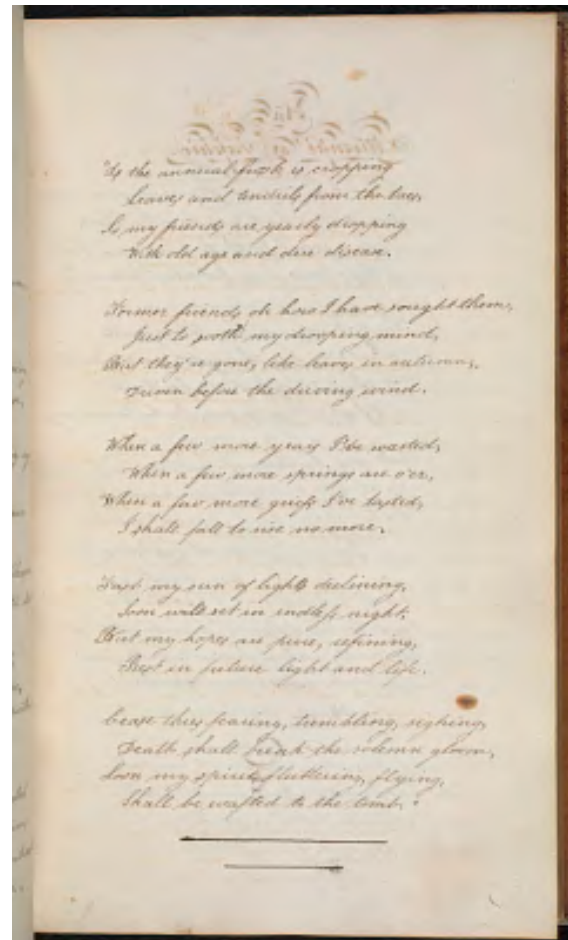 As the annual frost is cropping
Leaves and tendrils from the trees,
So my friends are yearly dropping
With old age and dire disease.
Former friends oh how I have sought them,
Just to sooth my drooping mind,
But they're gone, like leaves in autumn,
Driven before the driving wind.
When a few more years I've wasted,
When a few more springs are o'er,
When a few more griefs I've tasted,
I shall fall to rise no more.
Fast my sun of lights declining,
Soon will set in endless night;
But my hopes are pure, refining,
Rest in future light and life.
Cease this fearing, trembling, sighing,
Death shall break the solemn gloom,
Soon my spirit fluttering, flying,
Shall be wafted to the tomb.